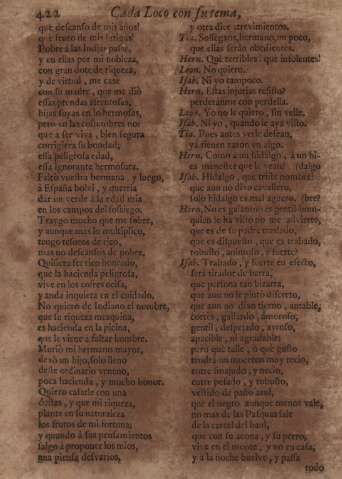 422 Cada Loco con su tema,
que descanso de mis años!
que fruto de mis fatigas!
Pobre à las Indias passè,
y en ellas por mi nobleza,
con gran dote de riqueza,
y de virtud, me casè
con su madre, que me diò
essas prendas
hijas suyas en lo hermosas,
pero en las costumbres no:
que à ser viva, bien segura
corrigiera su bondad;
essa peligrosa edad,
essa ignorante hermosura.
Faltò vuestra hermana, y luego,
à España bolvì, y querria
dar un verde à la edad mia
en los campos del sossiego.
Traygo mucho que me sobre,
y aunque mas lo multiplico,
tengo tesoros de rico,
mas no descansos de pobre.
Quisiera ser rico honrado,
que la hacienda peligrosa,
vive en los cofres ociosa,
y anda inquieta en el cuidado.
No quiero de Indiano el nombre,
que su riqueza mezquina,
es hacienda en la piscina,
que le viene à faltar hombre.
Muriò mi hermano mayor,
dexò un hijo, solo lleno
deste ordinario veneno,
poca hacienda, y mucho honor.
Quiero casarle con una
destas, y que mi riqueza,
plante en su naturaleza
los frutos de mi fortuna;
y quando à sus pensamientos
salgo à proponer los mios,
una piensa desvarios,
y otra dice atrevimientos.
Tia. Sossegaos, hermano, un poco,
que ellas seràn obedientes.
Hern. Què terribles! què insolentes!
Leon. No quiero.
Isab. Ni yo tampoco.
Hern. Estas injurias resisto?
perderanme con perderla.
Leon. Yo no le quiero, sin velle.
Isab. Ni yo, quando le aya visto.
Tia. Pues antes verle desean,
yà tienen razon en algo.
Hern. Como à un hidalgo, à un hidalgo
es menester que le vean?
Isab. Hidalgo, què triste nombre!
que aun no dixo cavallero,
solo hidalgo es mal aguero.
Hern. No es
quien le ha visto no me advierte,
que es de su padre traslado,
que es dispuesto, que es trabado,
robusto, animoso, y fuerte?
Isab. Trabado, y fuerte en efecto,
serà tirador de barra,
què persona tan bizarra,
que aun no le pintò discreto,
que aun no dixo tierno, amable,
cortès, gallardo, amoroso,
gentil, despejado, ayroso,
apacible, ni agradable:
pero què talle, ò què gusto
tendrà un mocetòn muy recio,
entre finajudo, y necio,
entre pesado, y robusto,
vestido de paño azul,
que el negro aunque menos vale,
no mas de las Pasquas sale
de la carcel del baul,
que con su azcona, y su perro,
vive en el monte, y no en casa,
y à la noche buelve, y passa
todo